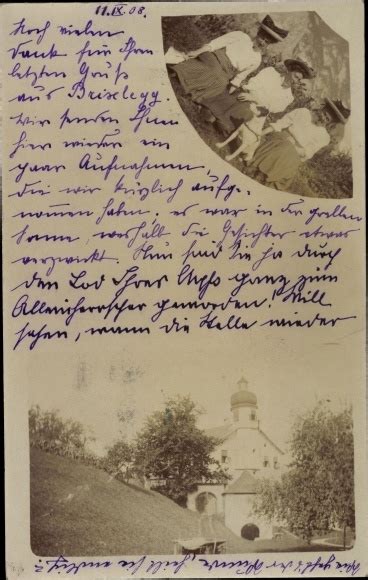 11.IX.08.
Noch vielen
Dank für Ihren
letzten Gruß
aus Brixlegg.
Wir senden Ihnen
hier wieder ein
paar Aufnahmen,
die wir kürzlich aufge-
nommen haben; es war in der grellen
Sonne, weshalb die Gesichter etwas
verzwickt. Nun sind Sie ja durch
den Tod Ihres Chefs ganz zum
Alleinherrscher geworden! Will
sehen, wann die Stelle wieder